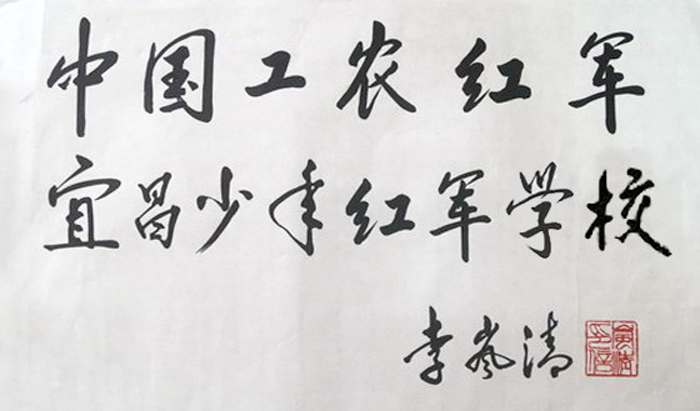 中国工农红军
宜昌少年红军学校
李岚清